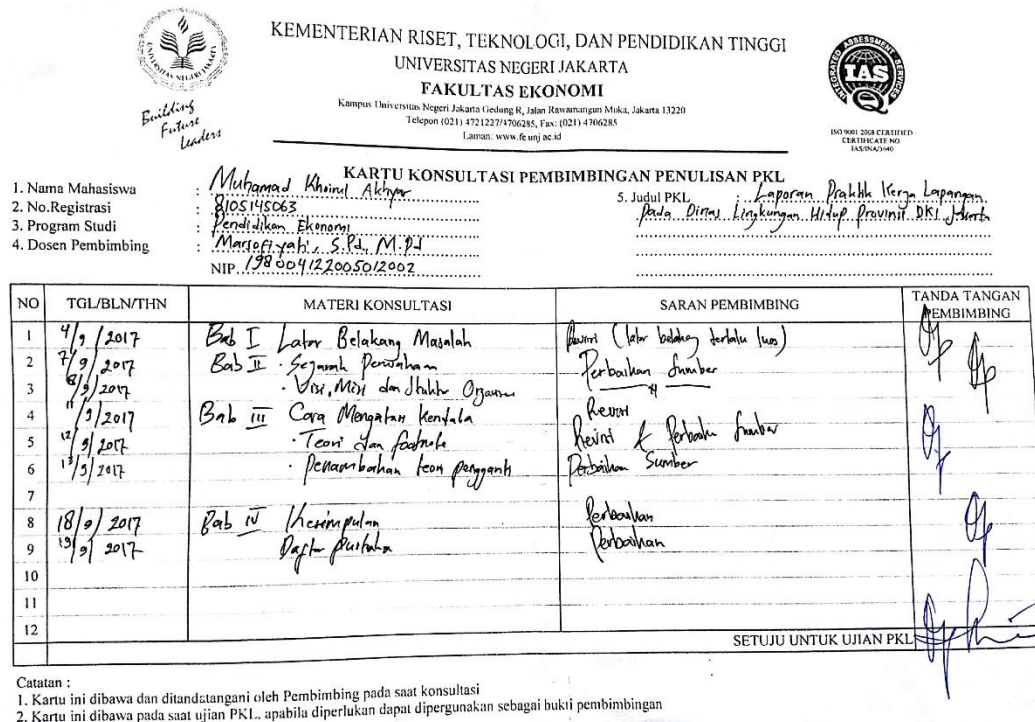 KEMENTERIAN RISET, TEKNOLOGI, DAN PENDIDIKAN TINGGI
UNIVERSITAS NEGERI JAKARTA
FAKULTAS EKONOMI
Kampus Universitas Negeri Jakarta Gedung R, Jalan Rawamangun Muka, Jakarta 13220
Telepon (021) 4721227/4706285, Fax: (021) 4706285
Laman: www.fe.unj.ac.id
UNIVERSITAS NEGERI JAKARTA
Building
Future
Leaders
INTEGRATED ASSESSMENT SERVICES
IAS
ISO 9001:2008 CERTIFIED
CERTIFICATE NO
KARTU KONSULTASI PEMBIMBINGAN PENULISAN PKL
1. Nama Mahasiswa : Muhamad Khoirul Akhyar
2. No.Registrasi : 8105145063
3. Program Studi : Pendidikan Ekonomi
4. Dosen Pembimbing : Marsofiyati, S.Pd, M.Pd
NIP. 198004122005012002
5. Judul PKL : Laporan Praktik Kerja Lapangan
Pada Dinas Lingkungan Hidup Provinsi DKI Jakarta
NO TGL/BLN/THN MATERI KONSULTASI SARAN PEMBIMBING TANDA TANGAN PEMBIMBING
1 4/9/2017 Bab I Latar Belakang Masalah Revisi (latar belakang terlalu luas)
2 7/9/2017 Bab II · Sejarah Perusahaan Perbaikan Sumber
3 8/9/2017 · Visi, Misi dan Struktur Organisasi "
4 11/9/2017 Bab III Cara Mengatasi Kendala Revisi
5 12/9/2017 · Teori dan footnote Revisi & Perbaiki Sumber
6 13/9/2017 · Penambahan teori pengganti Perbaikan Sumber
7
8 18/9/2017 Bab IV Kesimpulan Perbaikan
9 19/9/2017 Daftar Pustaka Perbaikan
10
11
12
SETUJU UNTUK UJIAN PKL
Catatan :
1. Kartu ini dibawa dan ditandatangani oleh Pembimbing pada saat konsultasi
2. Kartu ini dibawa pada saat ujian PKL.. apabila diperlukan dapat dipergunakan sebagai bukti pembimbingan